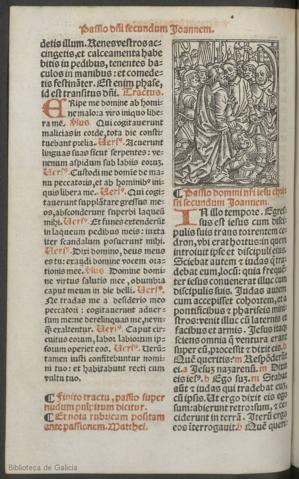 Passio dñi secundum Joannem.
detis illum. Renes vestros ac-
cingetis, et calceamenta habe
bitis in pedibus, tenentes ba-
culos in manibus: et comede-
tis festinãter. Est enim phase,
id est transitus dñi. Tractus.
ERipe me domine ab homi-
ne malo: a viro iniquo libe-
ra me. Vsus. Qui cogitauerunt
malicias in corde, tota die consti-
tuebant prelia. Versꝰ. Acuerunt
linguas suas sicut serpentes: ve-
nenum aspidum sub labiis eorũ.
Versꝰ. Custodi me domie de ma-
nu peccatoris, et ab hominibꝰ ini-
quis libera me. Versꝰ. Qui cogi-
tauerunt supplãtare gressus me-
os, absconderunt superbi laqueũ
mihi. Versꝰ. Et funes extenderũt
in laqueum pedibus meis: iuxta
iter scandalum posuerunt mihi.
Versꝰ. Dixi domino, deus meus
es tu: exaudi domine vocem ora-
tionis mee. Vsus Domine domi-
ne virtus salutis mee, obumbra
caput meum in die belli. Versꝰ.
Ne tradas me a desiderio meo
peccatori: cogitauerunt aduer-
sum me ne derelinquas me, ne vn-
q̃ exaltentur. Versꝰ. Caput cir-
cuitus eorum, labor labiorum ip-
sorum operiet eos. Versꝰ. Verũ-
tamen iusti confitebuntur nomi-
ni tuo: et habitabunt recti cum
vultu tuo.
¶ Finito tractu, passio super
nudum pulpitum dicitur.
¶ Et nota rubricam positam
ante passionem Matthei.
¶ Passio domini nr̃i iesu chri-
sti secundum Joannem.
IN illo tempore. Egres-
sus est iesus cum disci-
pulis suis trans torrentem ce-
dron, vbi erat hortus: in quem
introiuit ipse et discipuli eius.
Sciebat autem et iudas q̃ tra-
debat eum, locũ: quia frequẽ-
ter iesus conuenerat illuc cum
discipulis suis. Judas autem
cum accepisset cohortem, et a
pontificibus et phariseis mini-
stros: venit illuc cũ laternis et
facibus et armis. Jesus itaq̃
sciens omnia q̃ ventura erant
super eũ, processit et dixit eis.
Quẽ queritis: Respõderũt
ei. Jesum nazarenũ. Dicit
eis iesꝰ. Ego sum. Stabat
aut̃ et iudas qui tradebat eum,
cũ ipsis. Ut ergo dixit eis ego
sum: abierunt retrorsum, et ce-
ciderunt in terrã. Iterũ ergo
eos interrogauit. Quẽ queri-
Biblioteca de Galicia